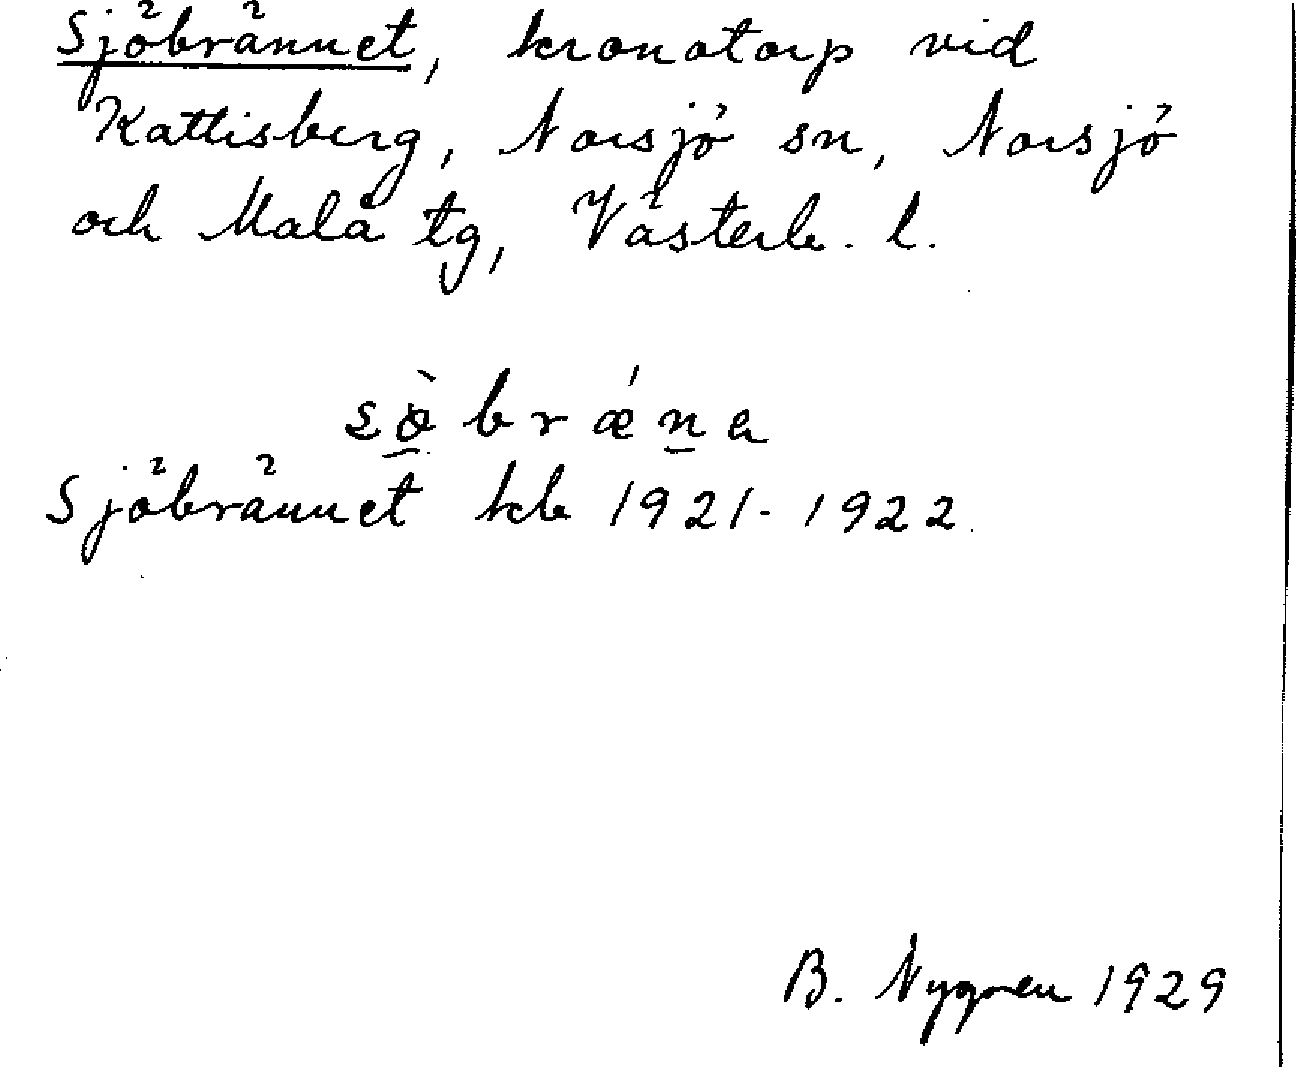 Sjöbrännet, kronotorp vid
Kattisberg, Norsjö sn, Norsjö
och Malå tg, Västerb. l.
Sjöbrännet kb 1921-1922.
B. Nygren 1929